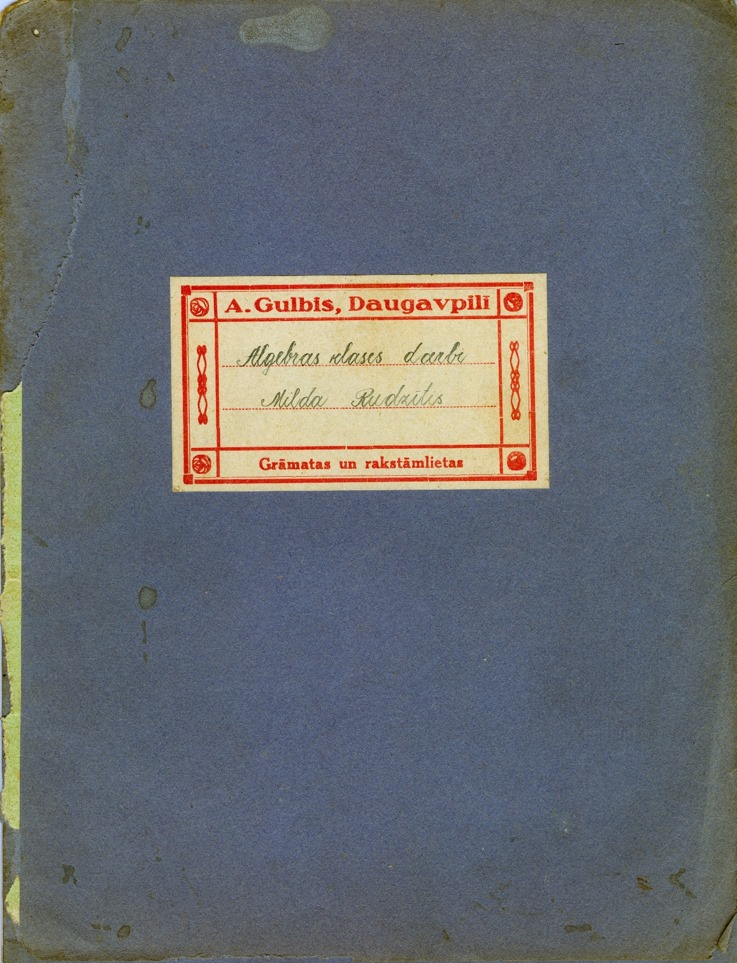 A. Gulbis, Daugavpilī
Algebras klases darbi
Milda Rudzītis
Grāmatas un rakstāmlietas